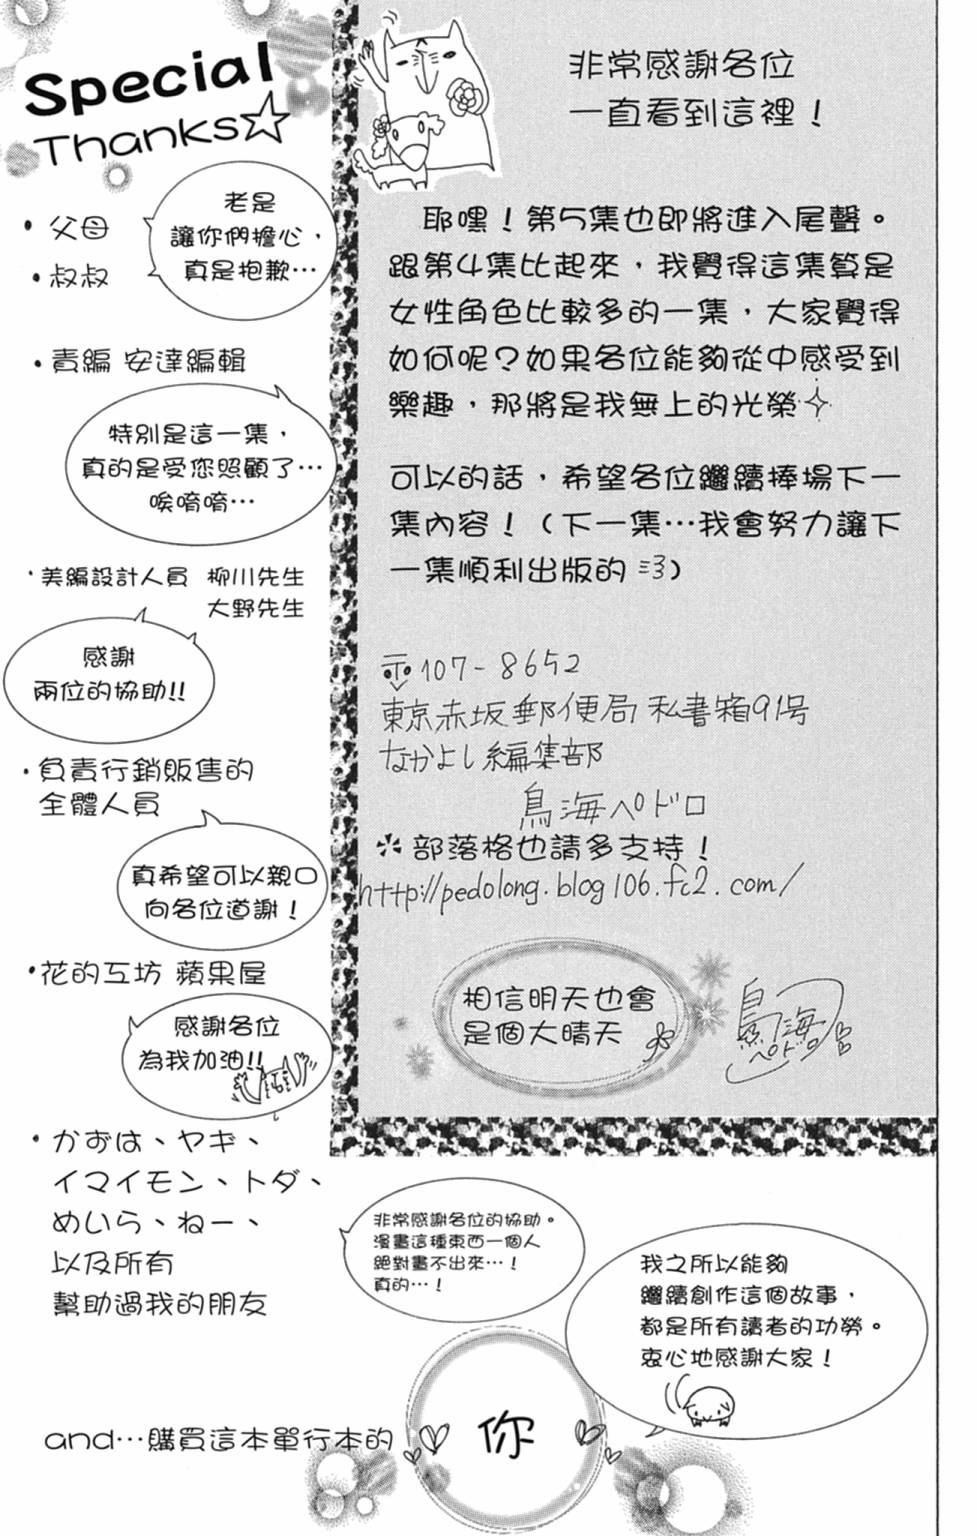 Special
Thanks☆
・父母
・叔叔
老是
讓你們擔心，
真是抱歉…
・責編 安達編輯
特別是這一集，
真的是受您照顧了…
唉唷唷…
・美編設計人員 柳川先生
大野先生
感謝
兩位的協助!!
・負責行銷販售的
全體人員
真希望可以親口
向各位道謝！
・花的工坊 蘋果屋
感謝各位
為我加油!!
・かずは、ヤギ、
イマイモン、トダ、
めいら、ねー、
以及所有
幫助過我的朋友
非常感謝各位的協助。
漫畫這種東西一個人
絕對畫不出來…！
真的…！
and…購買這本單行本的
你
我之所以能夠
繼續創作這個故事，
都是所有讀者的功勞。
衷心地感謝大家！
非常感謝各位
一直看到這裡！
耶嘿！第5集也即將進入尾聲。
跟第4集比起來，我覺得這集算是
女性角色比較多的一集，大家覺得
如何呢？如果各位能夠從中感受到
樂趣，那將是我無上的光榮✧
可以的話，希望各位繼續捧場下一
集內容！（下一集…我會努力讓下
一集順利出版的 ミ3）
〒107-8652
東京赤坂郵便局私書箱91号
なかよし編集部
鳥海ペドロ
部落格也請多支持！
http://pedolong.blog106.fc2.com/
相信明天也會
是個大晴天
鳥海
ペドロ